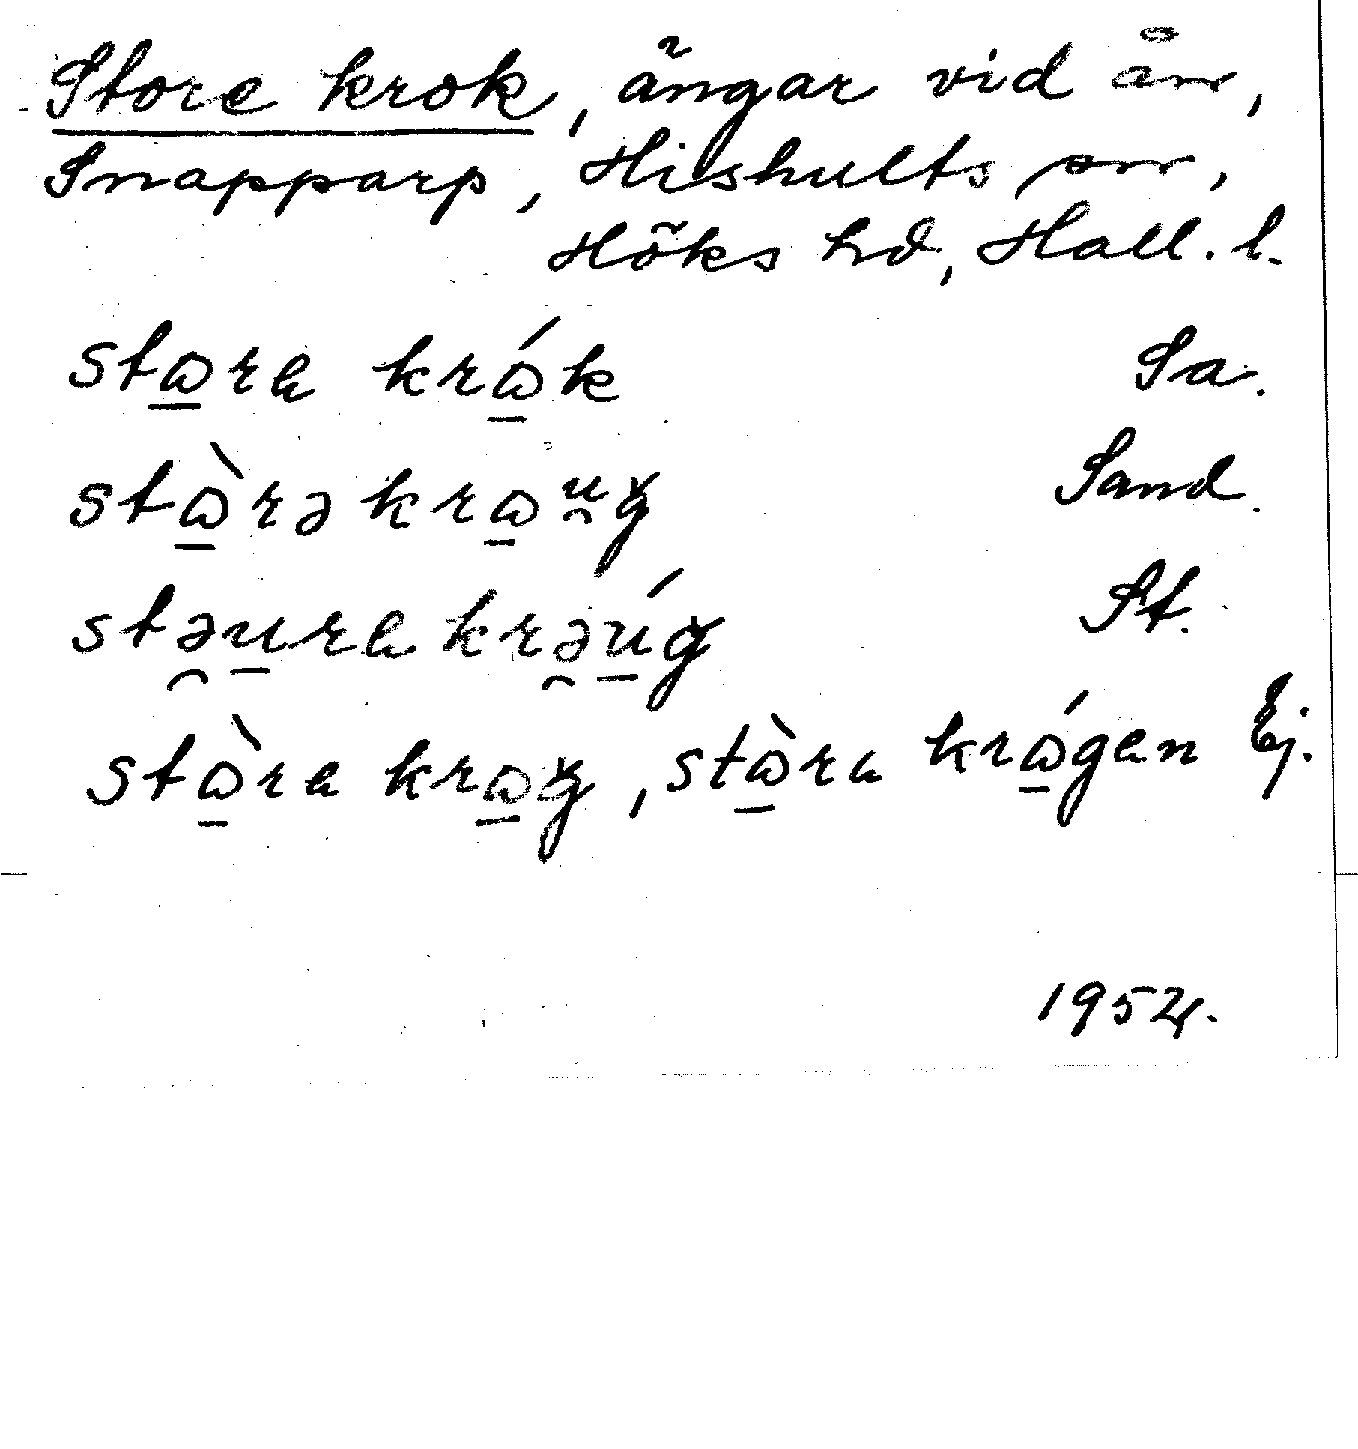 Store krok, ängar vid ån,
Snapparp, Hishults sn,
Höks hd, Hall. l.
stɷ̲re krɷ̲́k Sa.
stɷ̲̀rə krɷ̲u̯ǥ Sand.
stə̯u̲re krə̯ú̲ǥ St.
stɷ̲̀re krɷ̲ǥ, stɷ̲̀re krɷ̲́gen Ej.
1954.